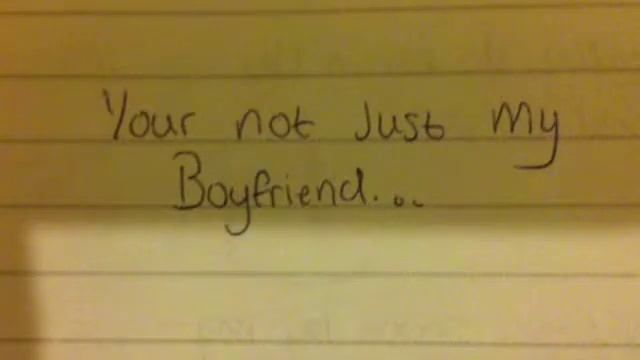 Your not Just My
Boyfriend...